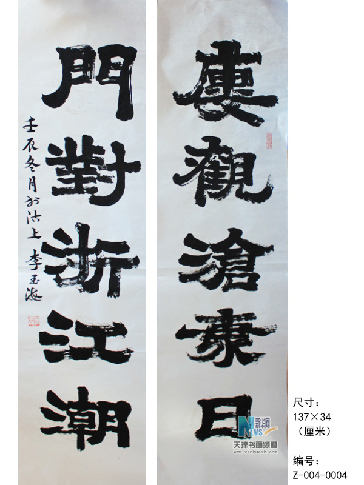 觀滄日
門對浙江潮
壬辰冬月於沽上 李玉海
尺寸：
137×34
（厘米）
编号：
Z-004-0004